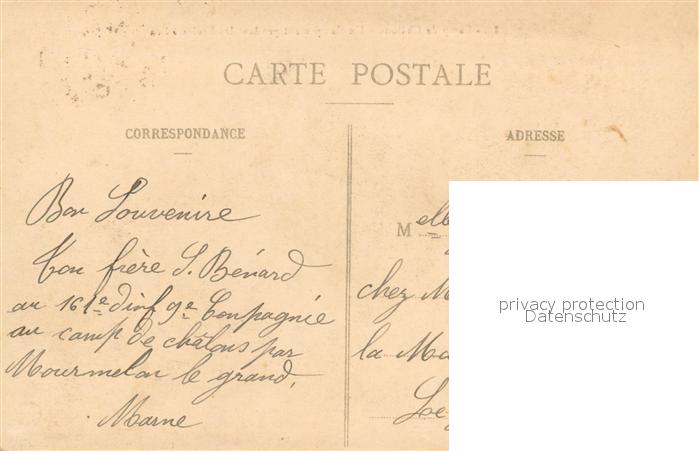 CARTE POSTALE
CORRESPONDANCE
ADRESSE
Bon Souvenire
Ton frère S. Bénard
au 161e d'inf 9e Compagnie
au camp de châlons par
Mourmelon le grand,
Marne
Melle
chez M
la Ma
privacy protection
Datenschutz